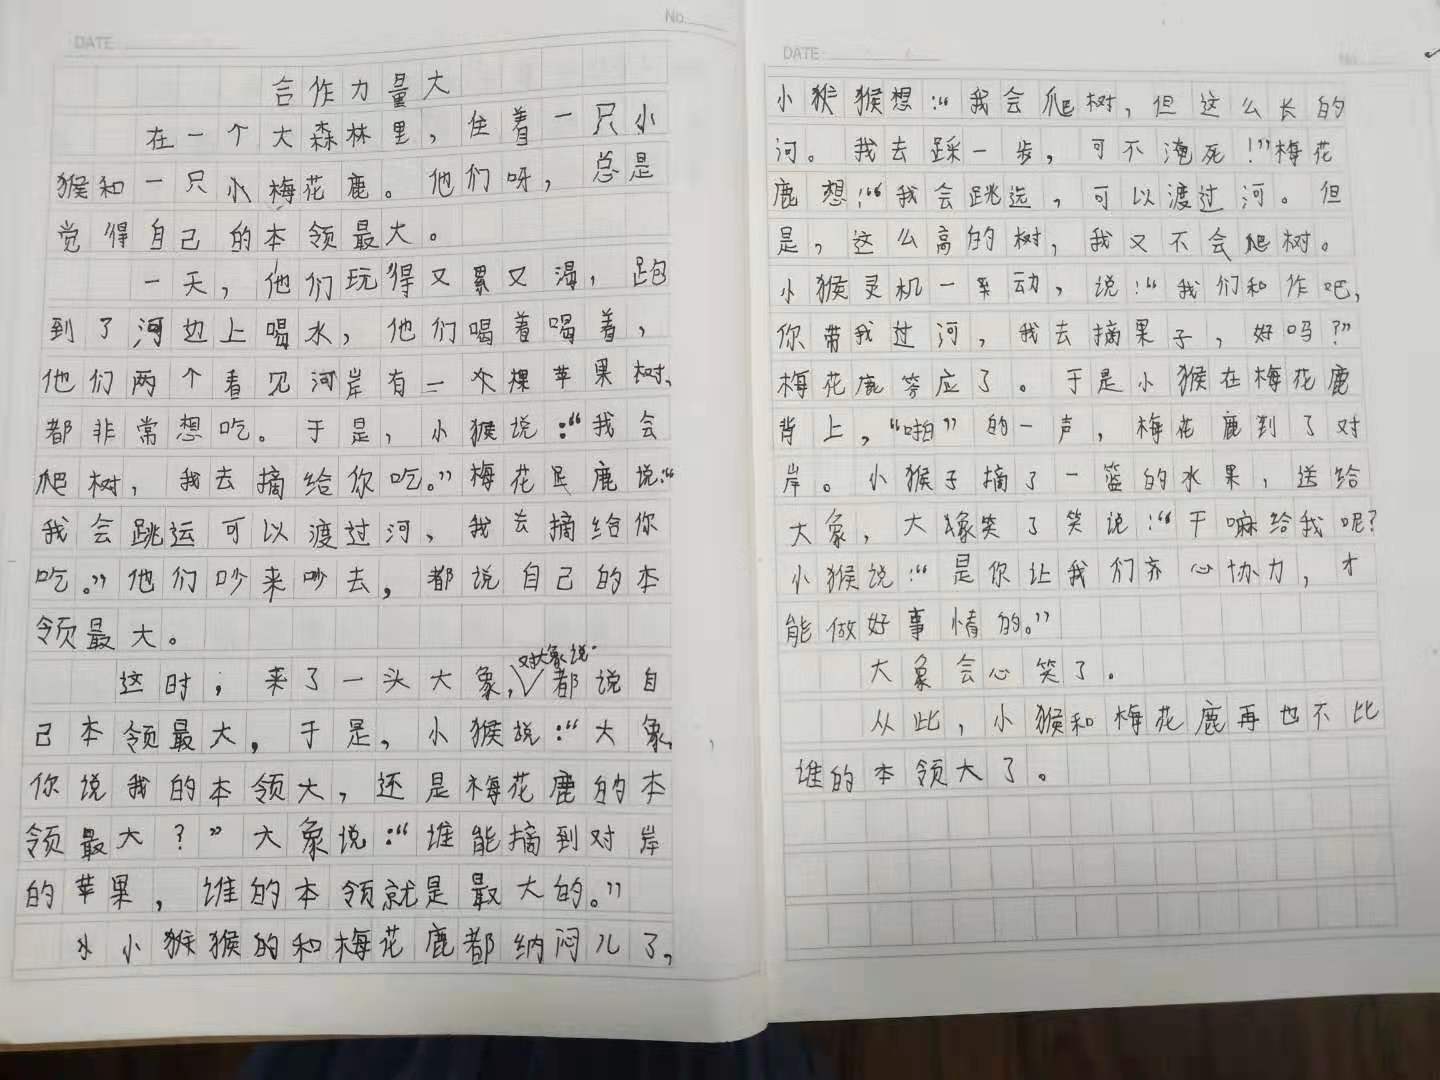 No.
DATE
合作力量大
在一个大森林里，住着一只小
猴和一只小梅花鹿。他们呀，总是
觉得自己的本领最大。
一天，他们玩得又累又渴，跑
到了河边上喝水，他们喝着喝着，
他们两个看见河岸有一个棵苹果树，
都非常想吃。于是，小猴说：“我会
爬树，我去摘给你吃。”梅花民鹿说：“
我会跳运可以渡过河，我去摘给你
吃。”他们吵来吵去，都说自己的本
领最大。
对大象说：
这时，来了一头大象，都说自
己本领最大，于是，小猴说：“大象，
你说我的本领大，还是梅花鹿的本
领最大？”大象说：“谁能摘到对岸
的苹果，谁的本领就是最大的。”
小小猴猴的和梅花鹿都纳闷儿了，
DATE
小猴猴想：“我会爬树，但这么长的
河。我去踩一步，可不淹死！”梅花
鹿想：“我会跳远，可以渡过河。但
是，这么高的树，我又不会爬树。
小猴灵机一动，说：“我们和作吧，
你带我过河，我去摘果子，好吗？”
梅花鹿答应了。于是小猴在梅花鹿
背上，“啪”的一声，梅花鹿到了对
岸。小猴子摘了一篮的水果，送给
大象，大象笑了笑说：“干嘛给我呢？
小猴说：“是你让我们齐心协力，才
能做好事情的。”
大象会心笑了。
从此，小猴和梅花鹿再也不比
谁的本领大了。